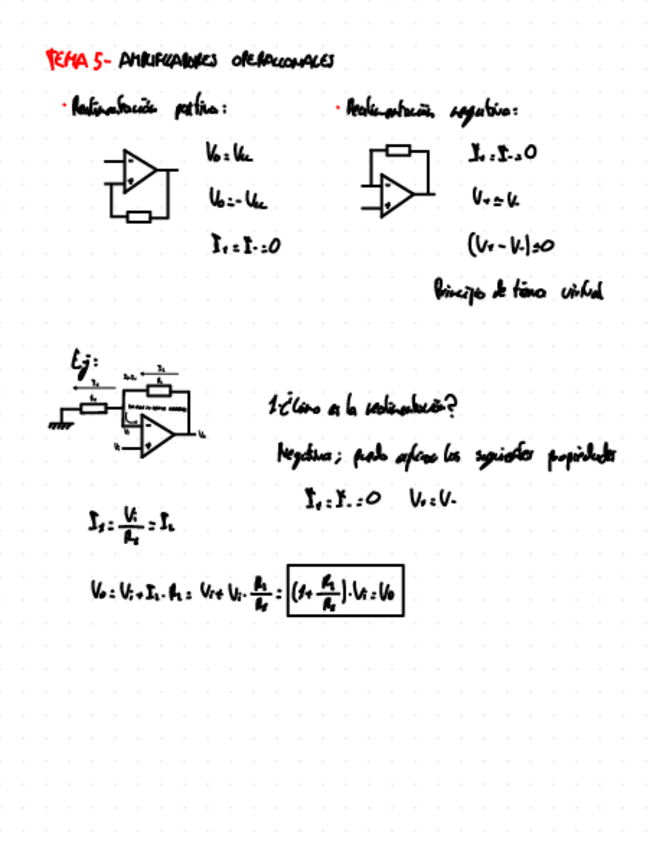 TEMA 5- AMPLIFICADORES OPERACIONALES
· Realimentación positiva:
Vo = Vcc
Vo = - Vcc
I+ = I- = 0
· Realimentación negativa:
I+ = I- = 0
V+ ≈ V-
(V+ - V-) = 0
Principio de tierra virtual
Ej:
I2
I1
R2
R1
Vi
Vi
Vo
1. ¿Cómo es la realimentación?
Negativa; puedo aplicar las siguientes propiedades
I+ = I- = 0 V+ = V-
I1 = Vi/R1 = I2
Vo = Vi + I2 · R2 = Vi + Vi · R2/R1 = (1 + R2/R1) · Vi = Vo